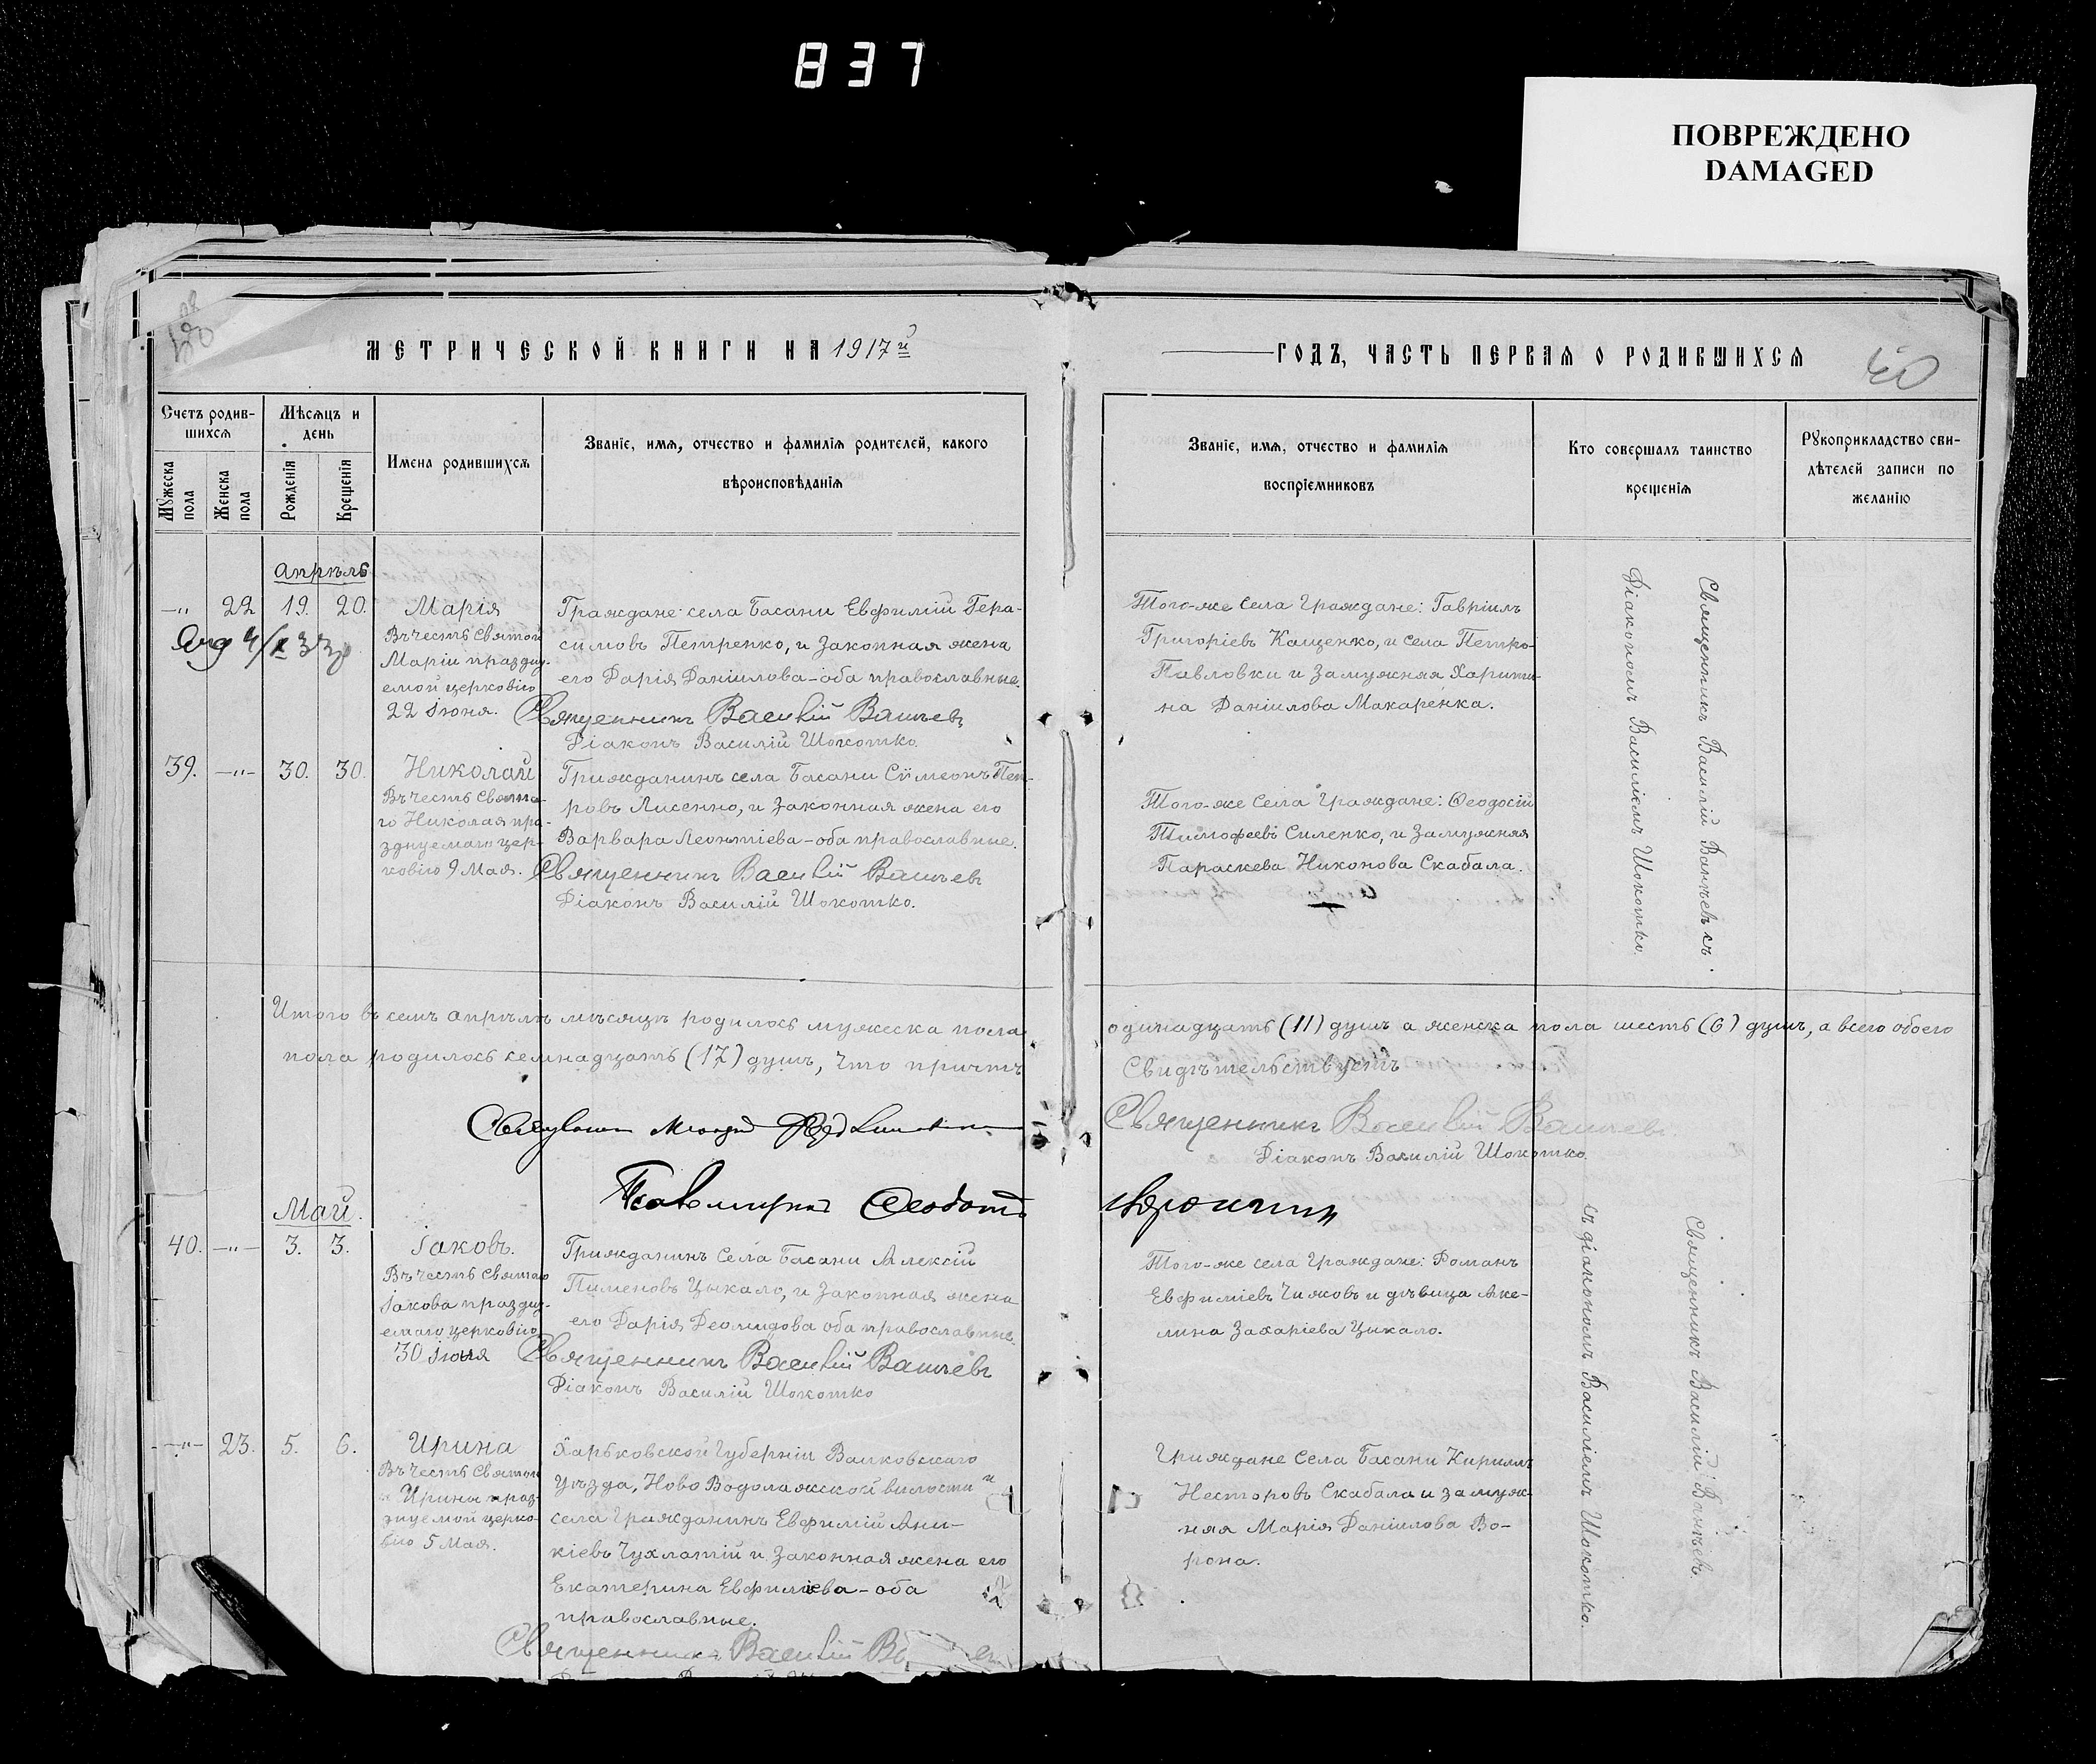 837
ПОВРЕЖДЕНО
DAMAGED
МЕТРИЧЕСКОЙ КНИГИ НА 1917й
ГОДЪ, ЧАСТЬ ПЕРВАЯ О РОДИВШИХСЯ
Счетъ родив-
шихся
Мѣсяцъ и
день
Мужеска
пола
Женска
пола
Рожденія
Крещенія
Имена родившихся
Званіе, имя, отчество и фамилія родителей, какого
вѣроисповѣданія
Званіе, имя, отчество и фамилія
воспріемниковъ
Кто совершалъ таинство
крещенія
Рукоприкладство сви-
дѣтелей записи по
желанію
Апрѣль
—"— 22 19. 20.
Марія
Въ честь Святой
Маріи праздну-
емой церковію
22 Іюня.
Граждане села Басани Евфимій Гера-
симовъ Петренко, и законная жена
его Дарія Даніилова - оба православные.
Священникъ Василій
Діаконъ Василій Шокотко.
Того-же села Граждане: Гавріилъ
Григоріевъ Кащенко, и села Петро-
Павловки и замужняя Харити-
на Даніилова Макаренка.
39. —"— 30. 30.
Николай
Въ честь Свята-
го Николая пра-
зднуемаго цер-
ковію 9 Мая.
Гражданинъ села Басани Сѵмеонъ Пет-
ровъ Лисенко, и законная жена его
Варвара Леонтіева - оба православные.
Священникъ Василій
Діаконъ Василій Шокотко.
Того-же села Граждане: Ѳеодосій
Тимофеевъ Силенко, и замужняя
Параскева Никонова Скабала.
Священникъ Василій съ
Діакономъ Василіемъ Шокотко.
Итого въ семъ Апрѣлѣ мѣсяцѣ родилось мужеска пола одинадцать (11) душъ а женска пола шесть (6) душъ, а всего обоего
пола родилось семнадцать (17) душъ, что причтъ свидѣтельствуетъ
Священникъ Василій
Діаконъ Василій Шокотко.
Псаломщикъ Ѳеодотъ
Май.
40. —"— 3. 3.
Іаковъ.
Въ честь Святаго
Іакова праздну-
емаго церковію
30 Іюня
Гражданинъ села Басани Алексій
Пименовъ Цыкало, и законная жена
его Дарія Деомидова оба православные.
Священникъ Василій
Діаконъ Василій Шокотко
Того-же села Граждане: Романъ
Евфиміевъ Чижовъ и дѣвица Аке-
лина Захаріева Цыкало.
—"— 23. 5. 6.
Ирина
Въ честь Святой
Ирины праз-
днуемой церко-
вію 5 Мая.
Харьковской Губерніи Валковскаго
уѣзда, Ново Водолажской волости и
села Гражданинъ Евфимій Ани-
кіевъ Чухлатій и законная жена его
Екатерина Евфиміева - оба
православные.
Священникъ Василій
Граждане села Басани Кириллъ
Несторовъ Скабала и замуж-
няя Марія Даніилова Во-
рона.
Священникъ Василій
съ діакономъ Василіемъ Шокотко.